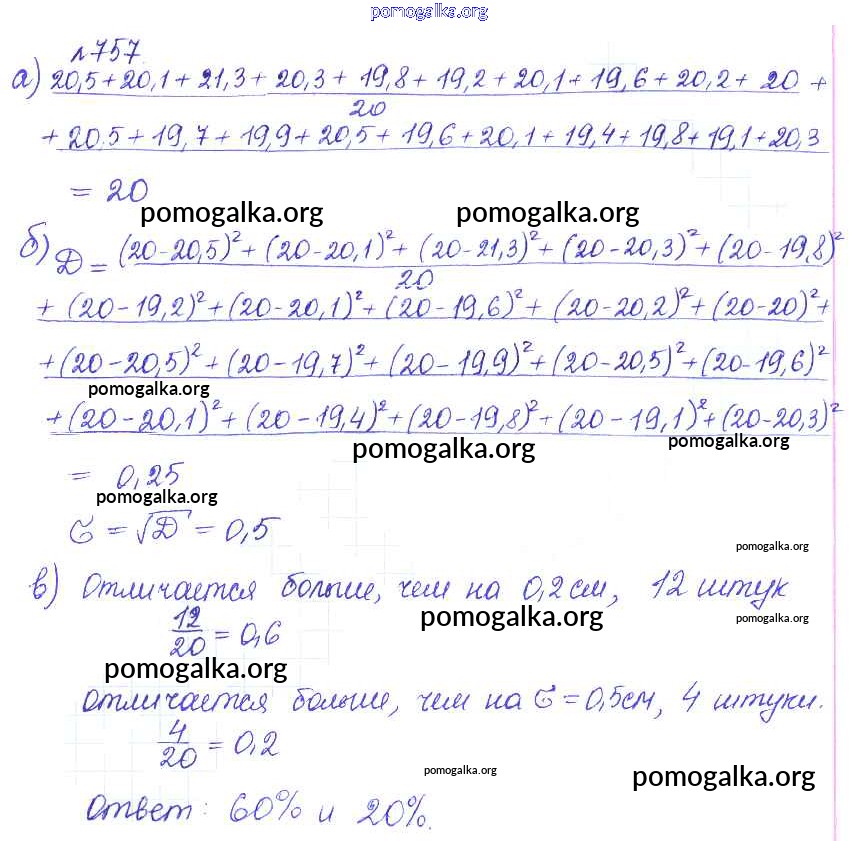 pomogalka.org
№757.
а) 20,5+20,1+21,3+20,3+19,8+19,2+20,1+19,6+20,2+20+
20
+20.5+19,7+19,9+20,5+19,6+20,1+19,4+19,8+19,1+20,3
= 20
pomogalka.org pomogalka.org
б) D = (20-20,5)²+(20-20,1)²+(20-21,3)²+(20-20,3)²+(20-19,8)²
20
+(20-19,2)²+(20-20,1)²+(20-19,6)²+(20-20,2)²+(20-20)²+
+(20-20,5)²+(20-19,7)²+(20-19,9)²+(20-20,5)²+(20-19,6)²
pomogalka.org
+(20-20,1)²+(20-19,4)²+(20-19,8)²+(20-19,1)²+(20-20,3)²
pomogalka.org pomogalka.org
= 0,25
pomogalka.org
σ = √D = 0,5
pomogalka.org
в) Отличается больше, чем на 0,2см, 12 штук
pomogalka.org pomogalka.org
12/20 = 0,6
pomogalka.org
Отличается больше, чем на σ = 0,5см, 4 штуки.
4/20 = 0,2
pomogalka.org pomogalka.org
Ответ: 60% и 20%.